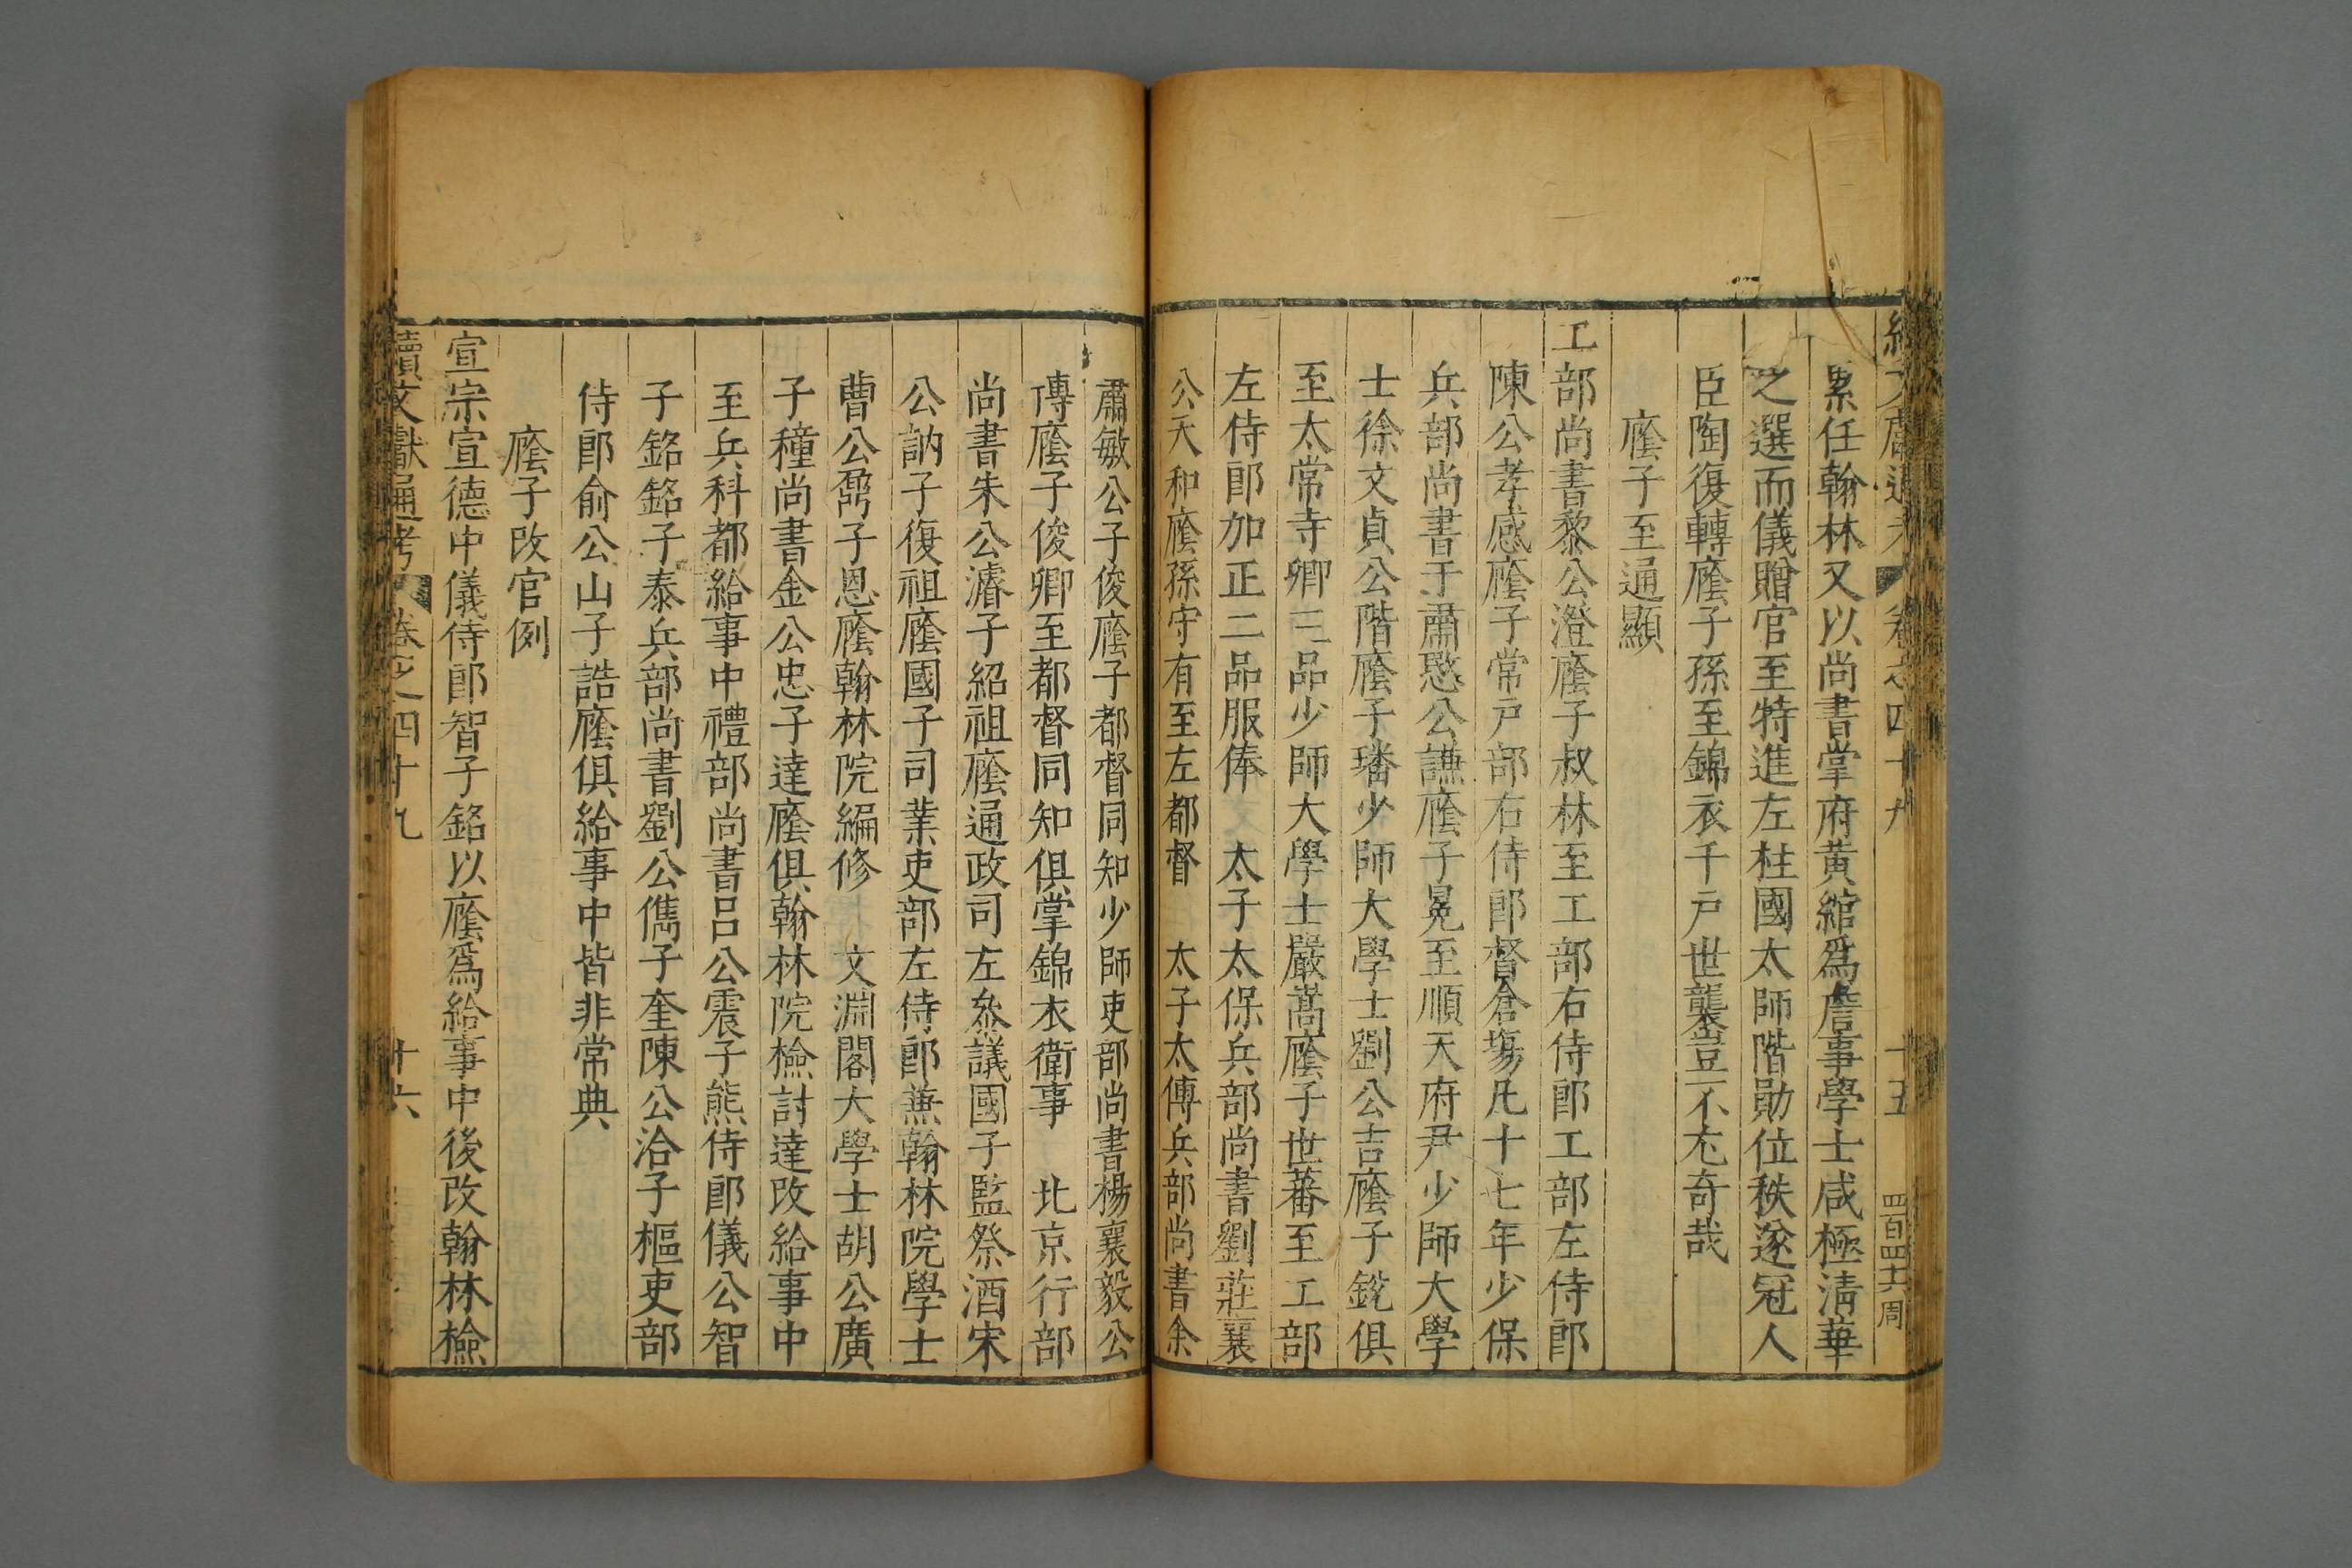 續文獻通考 卷之四十九 十五 四百四十六周
累任翰林又以尚書掌府黃綰爲詹事學士咸極淸華
之選而儀贈官至特進左柱國太師階勛位秩遂冠人
臣陶復轉廕子孫至錦衣千戸世襲豈不尤奇哉
廕子至通顯
工部尚書黎公澄廕子叔林至工部右侍郎工部左侍郎
陳公孝感廕子常戸部右侍郎督倉塲凡十七年少保
兵部尚書于肅愍公謙廕子冕至順天府尹少師大學
士徐文貞公階廕子璠少師大學士劉公吉廕子銳俱
至太常寺卿三品少師大學士嚴嵩廕子世蕃至工部
左侍郎加正二品服俸 太子太保兵部尚書劉莊襄
公天和廕孫守有至左都督 太子太傅兵部尚書余
肅敏公子俊廕子都督同知少師吏部尚書楊襄毅公
傅廕子俊卿至都督同知俱掌錦衣衛事 北京行部
尚書朱公濬子紹祖廕通政司左叅議國子監祭酒宋
公訥子復祖廕國子司業吏部左侍郎兼翰林院學士
曹公鼐子恩廕翰林院編修 文淵閣大學士胡公廣
子穜尚書金公忠子達廕俱翰林院檢討達改給事中
至兵科都給事中禮部尚書呂公震子熊侍郎儀公智
子銘銘子泰兵部尚書劉公儁子奎陳公洽子樞吏部
侍郎俞公山子誥廕俱給事中皆非常典
廕子改官例
宣宗宣德中儀侍郎智子銘以廕爲給事中後改翰林檢
續文獻通考 卷之四十九 十六